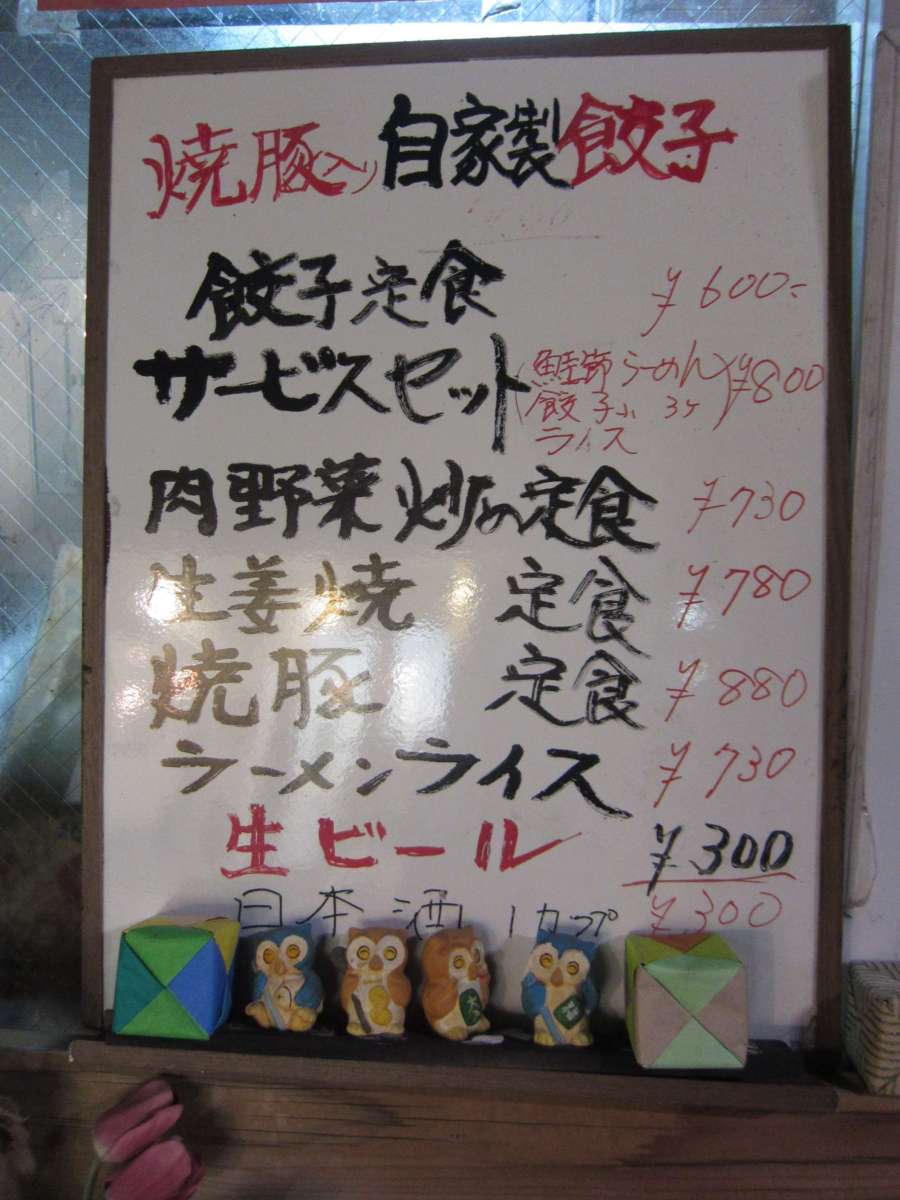 焼豚入り自家製餃子
餃子定食 ¥600-
サービスセット(鮭節らーめん
餃子小 3ケ
ライス) ¥800
肉野菜炒め定食 ¥730
生姜焼 定食 ¥780
焼豚 定食 ¥880
ラーメンライス ¥730
生ビール ¥300
日本酒 1カップ ¥300